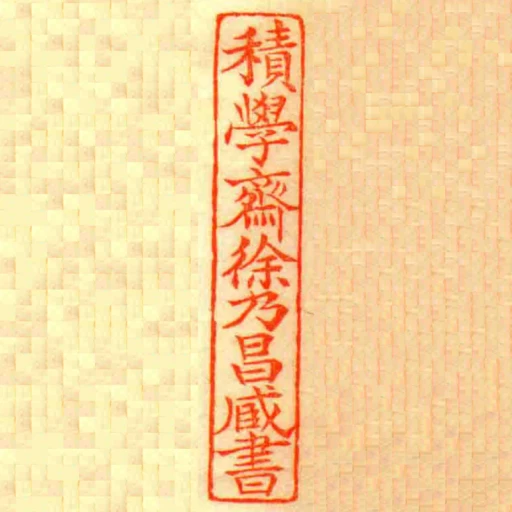 積學齋徐乃昌藏書